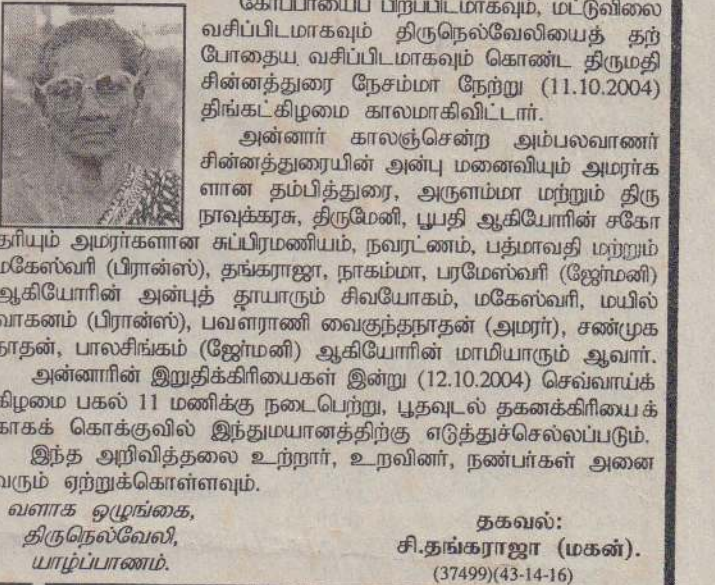 கோப்பாயைப் பிறப்பிடமாகவும், மட்டுவிலை
வசிப்பிடமாகவும் திருநெல்வேலியைத் தற்
போதைய வசிப்பிடமாகவும் கொண்ட திருமதி
சின்னத்துரை நேசம்மா நேற்று (11.10.2004)
திங்கட்கிழமை காலமாகிவிட்டார்.
அன்னார் காலஞ்சென்ற அம்பலவாணர்
சின்னத்துரையின் அன்பு மனைவியும் அமரர்க
ளான தம்பித்துரை, அருளம்மா மற்றும் திரு
நாவுக்கரசு, திருமேனி, பூபதி ஆகியோரின் சகோ
தரியும் அமரர்களான சுப்பிரமணியம், நவரட்ணம், பத்மாவதி மற்றும்
மகேஸ்வரி (பிரான்ஸ்), தங்கராஜா, நாகம்மா, பரமேஸ்வரி (ஜேர்மனி)
ஆகியோரின் அன்புத் தாயாரும் சிவயோகம், மகேஸ்வரி, மயில்
வாகனம் (பிரான்ஸ்), பவளராணி வைகுந்தநாதன் (அமரர்), சண்முக
நாதன், பாலசிங்கம் (ஜேர்மனி) ஆகியோரின் மாமியாரும் ஆவார்.
அன்னாரின் இறுதிக்கிரியைகள் இன்று (12.10.2004) செவ்வாய்க்
கிழமை பகல் 11 மணிக்கு நடைபெற்று, பூதவுடல் தகனக்கிரியைக்
காகக் கொக்குவில் இந்துமயானத்திற்கு எடுத்துச்செல்லப்படும்.
இந்த அறிவித்தலை உற்றார், உறவினர், நண்பர்கள் அனை
வரும் ஏற்றுக்கொள்ளவும்.
வளாக ஒழுங்கை,
திருநெல்வேலி,
யாழ்ப்பாணம்.
தகவல்:
சி.தங்கராஜா (மகன்).
(37499)(43-14-16)